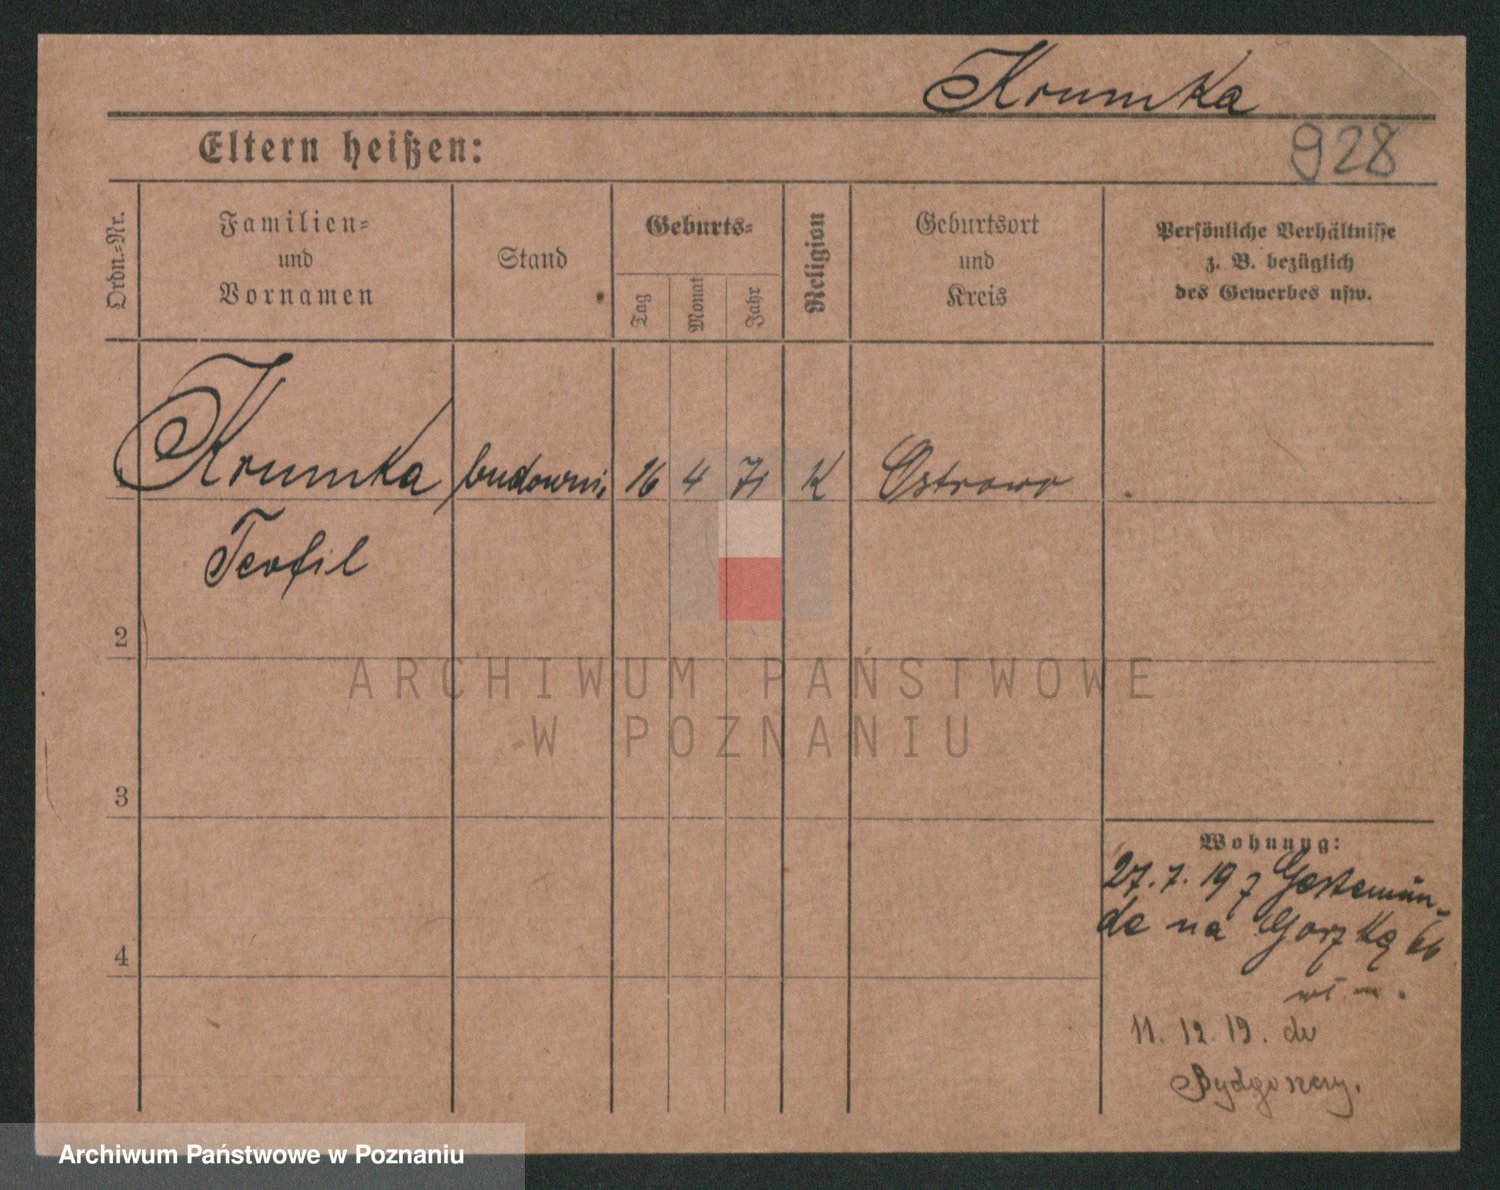 Krumka
Eltern heißen:
928
Ordn.-Nr.
Familien-
und
Vornamen
Stand
Geburts-
Tag
Monat
Jahr
Religion
Geburtsort
und
Kreis
Persönliche Verhältnisse
z. B. bezüglich
des Gewerbes usw.
Krumka budowni. 16 4 71 K Ostrowo
Teofil
2
3
4
ARCHIWUM PAŃSTWOWE
W POZNANIU
Wohnung:
27.7.19 z Gestemün-
de na Górz
11.12.19. do
Bydgoszczy.
Archiwum Państwowe w Poznaniu